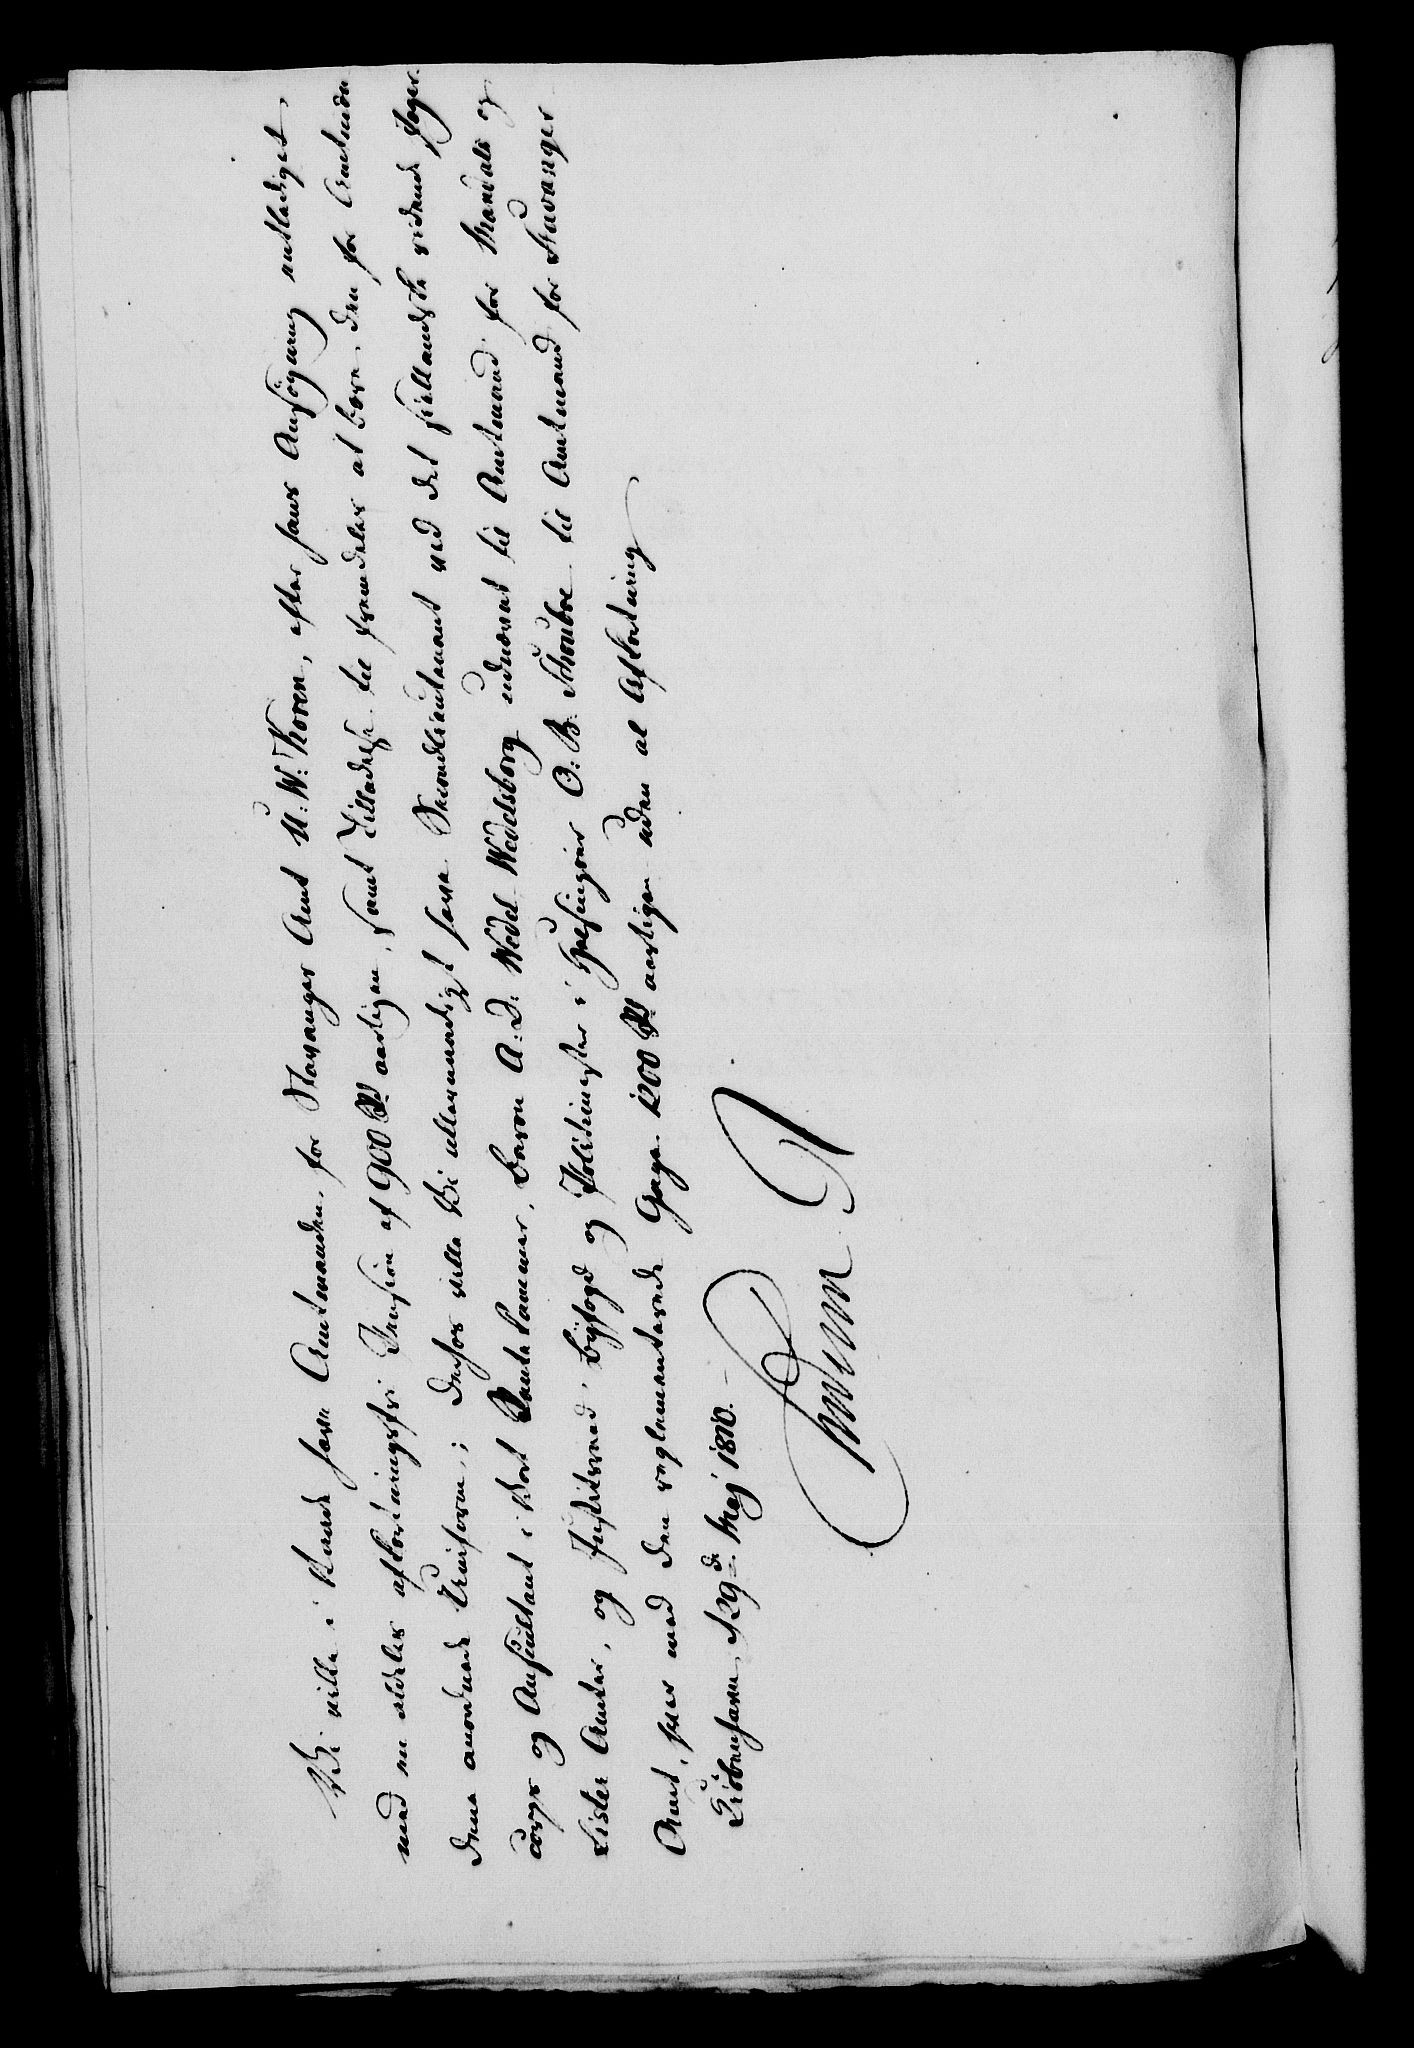 Vi ville i Naade have Amtmanden for Stavanger Amt U: W: Koren, efter hans Ansøgning entlediget,
med en aldeles afkortningsfri Pension af 900 Rd aarligen, samt Tilladelse til fremdeles at bære den for Amtmænd
dem anordnede Uniform; derhos ville Vi allernaadigst have Secondlieutenant ved det siellandske ridende Jæger-
corps og Auscultant i Vort Rentekammer, Baron A: D: Wedel Wedelsborg udnævnt til Amtmand for Mandals og
Lister Amter, og Justitsraad, Byfoged og Politimester i Helsingøer O: B: Schouboe til Amtmand for Stavanger
Amt, hver med den reglementerede Gage 1200 Rd aarligen uden al Afkortning
Kiöbenhavn, d 29de Maj 1810.
Frederik R